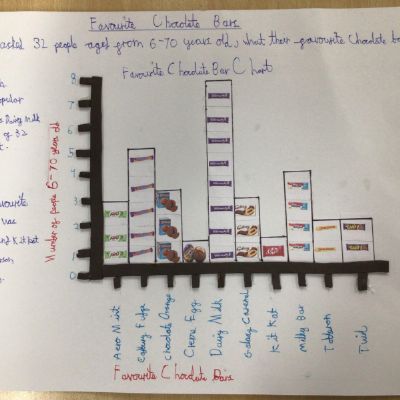 Favourite Chocolate Bars
asked 32 people aged from 6-70 years old, what their favourite Chocolate ba
Favourite Chocolate Bar Chart
popular
Dairy Milk
of 32
favourite
was
and Kit Kat
person
Number of people 6-70 years old
8
7
6
5
4
3
2
1
0
Aero Mint
Cadbury Fudge
Chocolate Orange
Creme Egg
Dairy Milk
Galaxy Caramel
Kit Kat
Milky Bar
Twix
Favourite Chocolate Bars